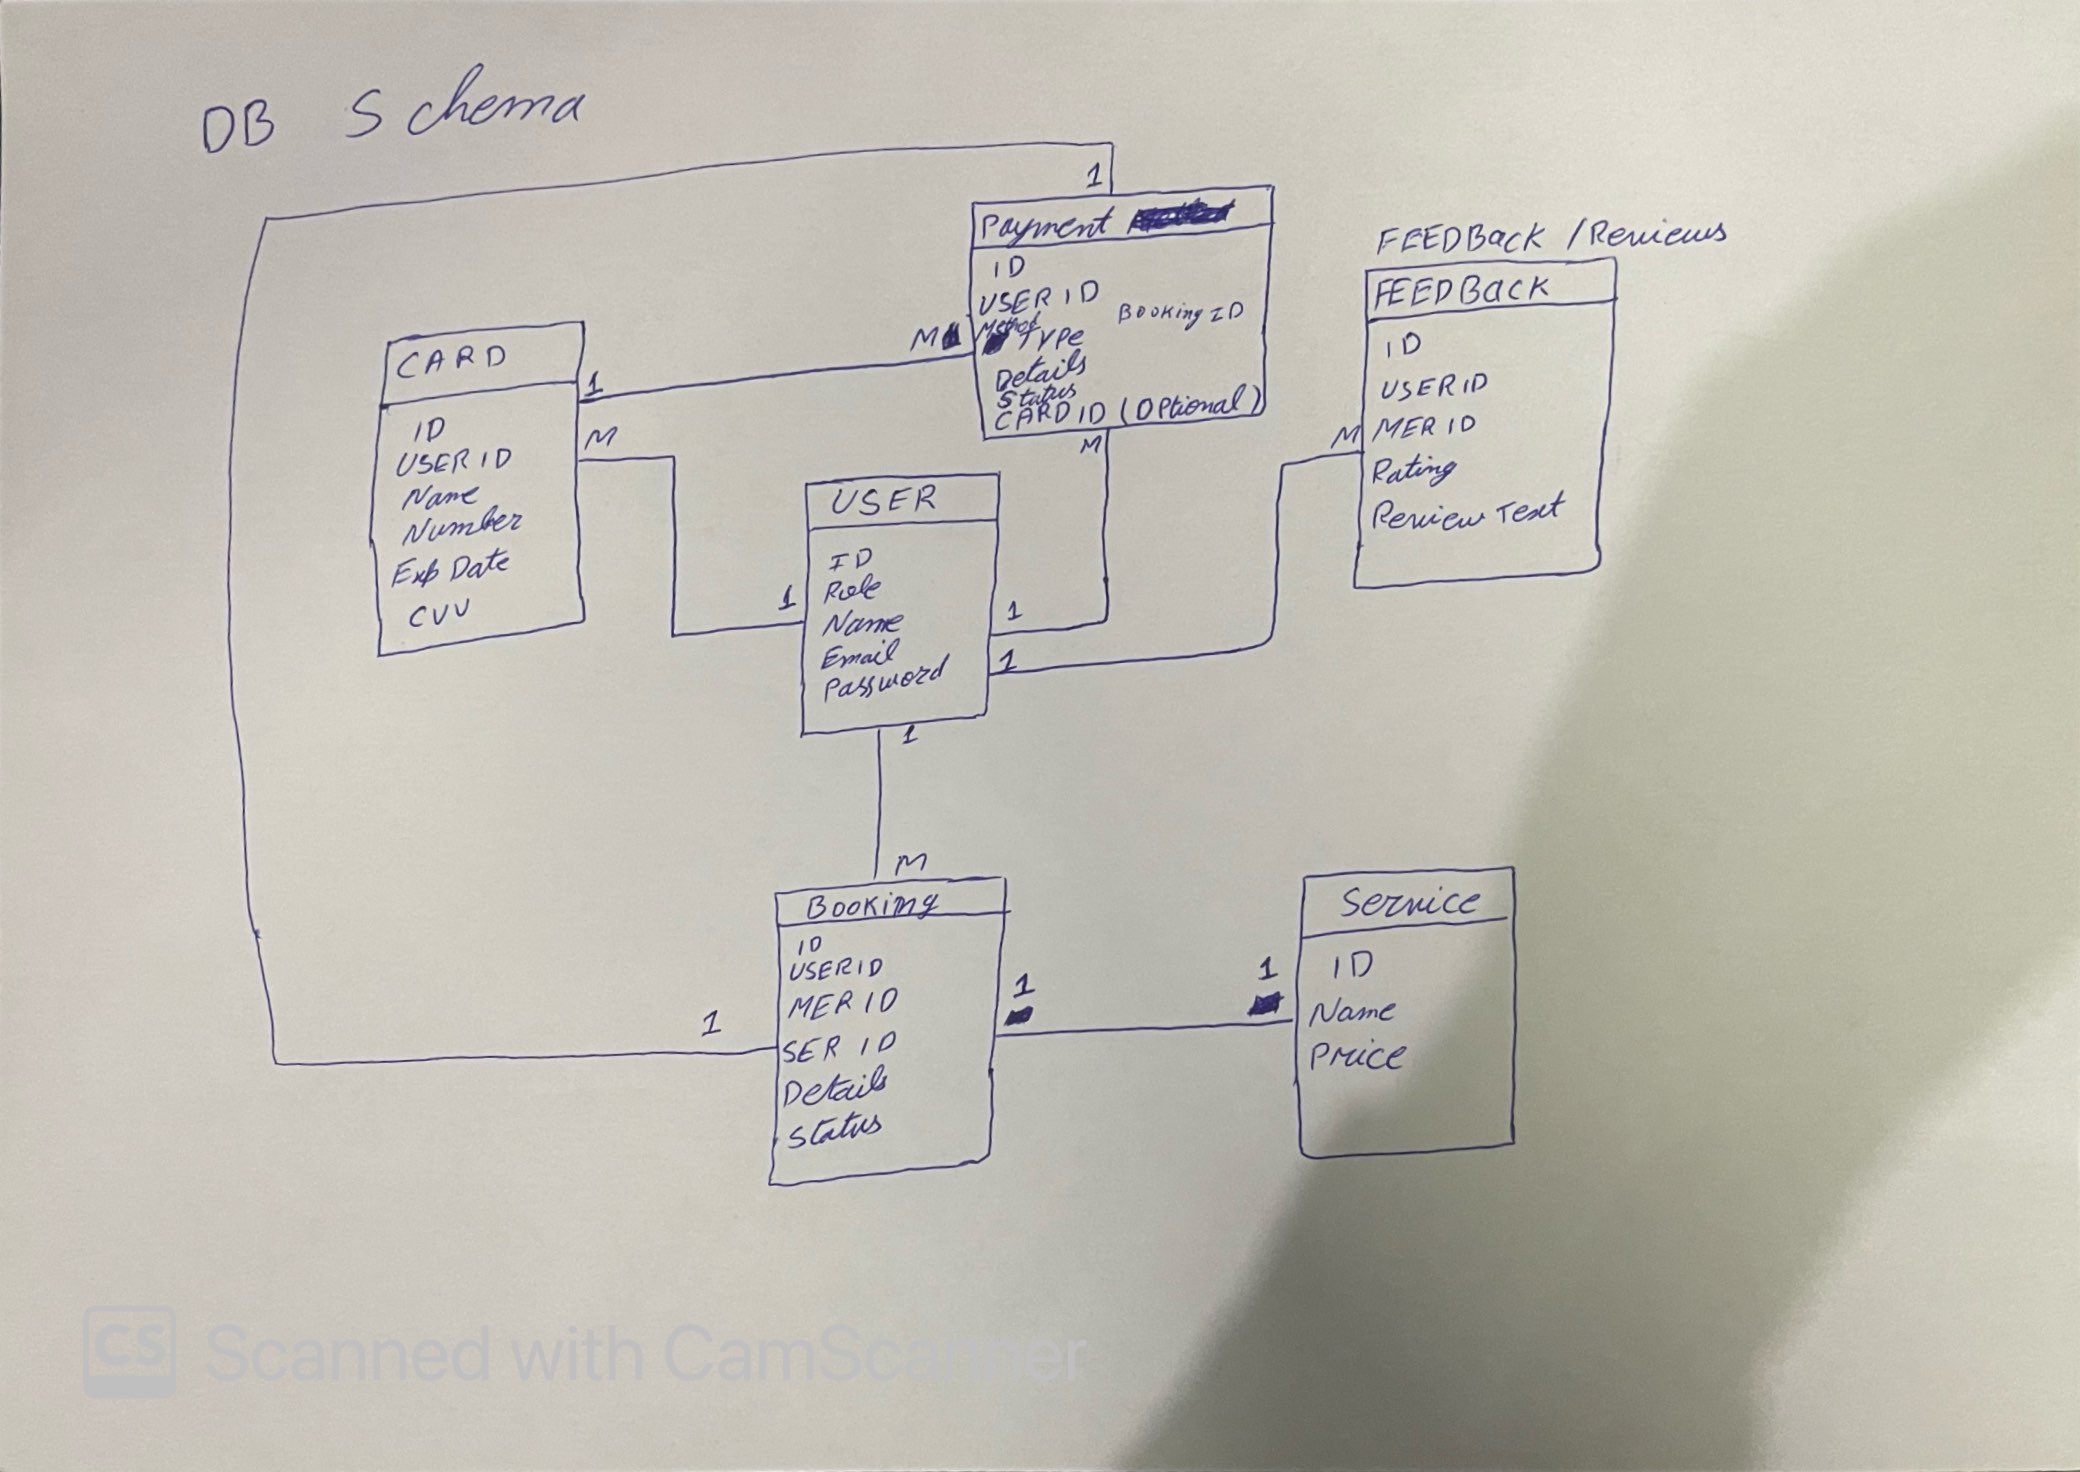 DB Schema
1
Payment
ID
USER ID
Booking ID
Method
Type
Details
Status
CARD ID (Optional)
M
M
FEEDBack / Reviews
FEEDBack
ID
USER ID
MER ID
Rating
Review Text
M
CARD
ID
USER ID
Name
Number
Exp Date
CVV
1
M
USER
ID
Role
Name
Email
Password
1
1
1
1
M
Booking
ID
USER ID
MER ID
SER ID
Details
Status
1
1
1
Service
ID
Name
Price
CS Scanned with CamScanner